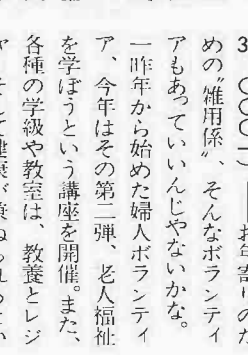 お年寄りのた
めの〝雑用係〟、そんなボランティ
アもあっていいんじゃないかな。
一昨年から始めた婦人ボランティ
ア、今年はその第二弾、老人福祉
を学ぼうという講座を開催。また、
各種の学級や教室は、教養とレジ